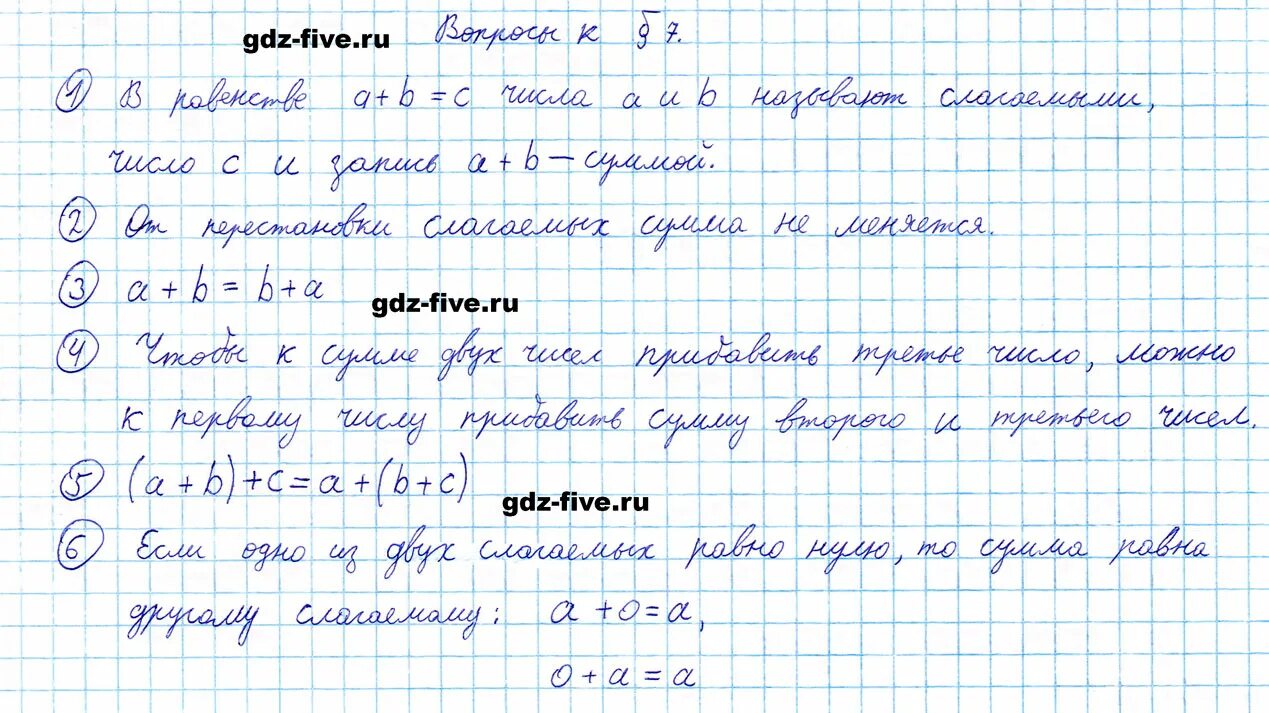 gdz-five.ru Вопросы к § 7.
1 В равенстве a + b = c числа a и b называют слагаемыми,
число c и запись a + b — суммой.
2 От перестановки слагаемых сумма не меняется.
3 a + b = b + a
gdz-five.ru
4 Чтобы к сумме двух чисел прибавить третье число, можно
к первому числу прибавить сумму второго и третьего чисел.
5 (a + b) + c = a + (b + c)
gdz-five.ru
6 Если одно из двух слагаемых равно нулю, то сумма равна
другому слагаемому: a + 0 = a,
0 + a = a